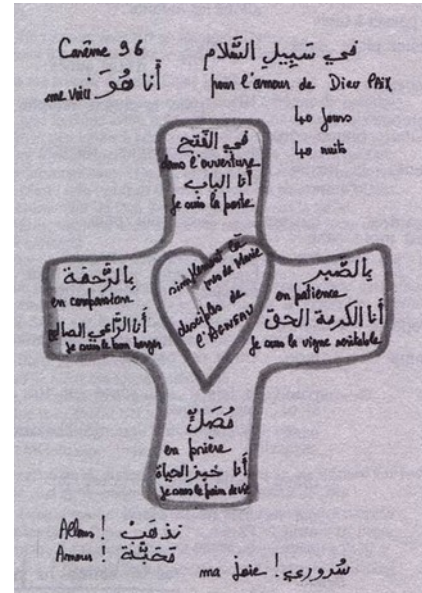 Carême 96
في سَبِيلِ السَّلام
me voici أَنا هُوَ
pour l'amour de Dieu PAIX
40 jours
40 nuits
في الفَتح
dans l'ouverture
أنا الباب
je suis la porte
بِالرَّحمَة
en compassion
أَنا الرَّاعي الصالح
je suis le bon berger
simplement là
près de Marie
disciples de
l'AGNEAU
بِالصَّبر
en patience
أنا الكرمة الحق
je suis la vigne véritable
مُصَلٍّ
en prière
أنا خبز الحياة
je suis le pain de vie
Allons ! نذهَبْ
Amour ! مَحَبَّة
ma joie ! سُروري